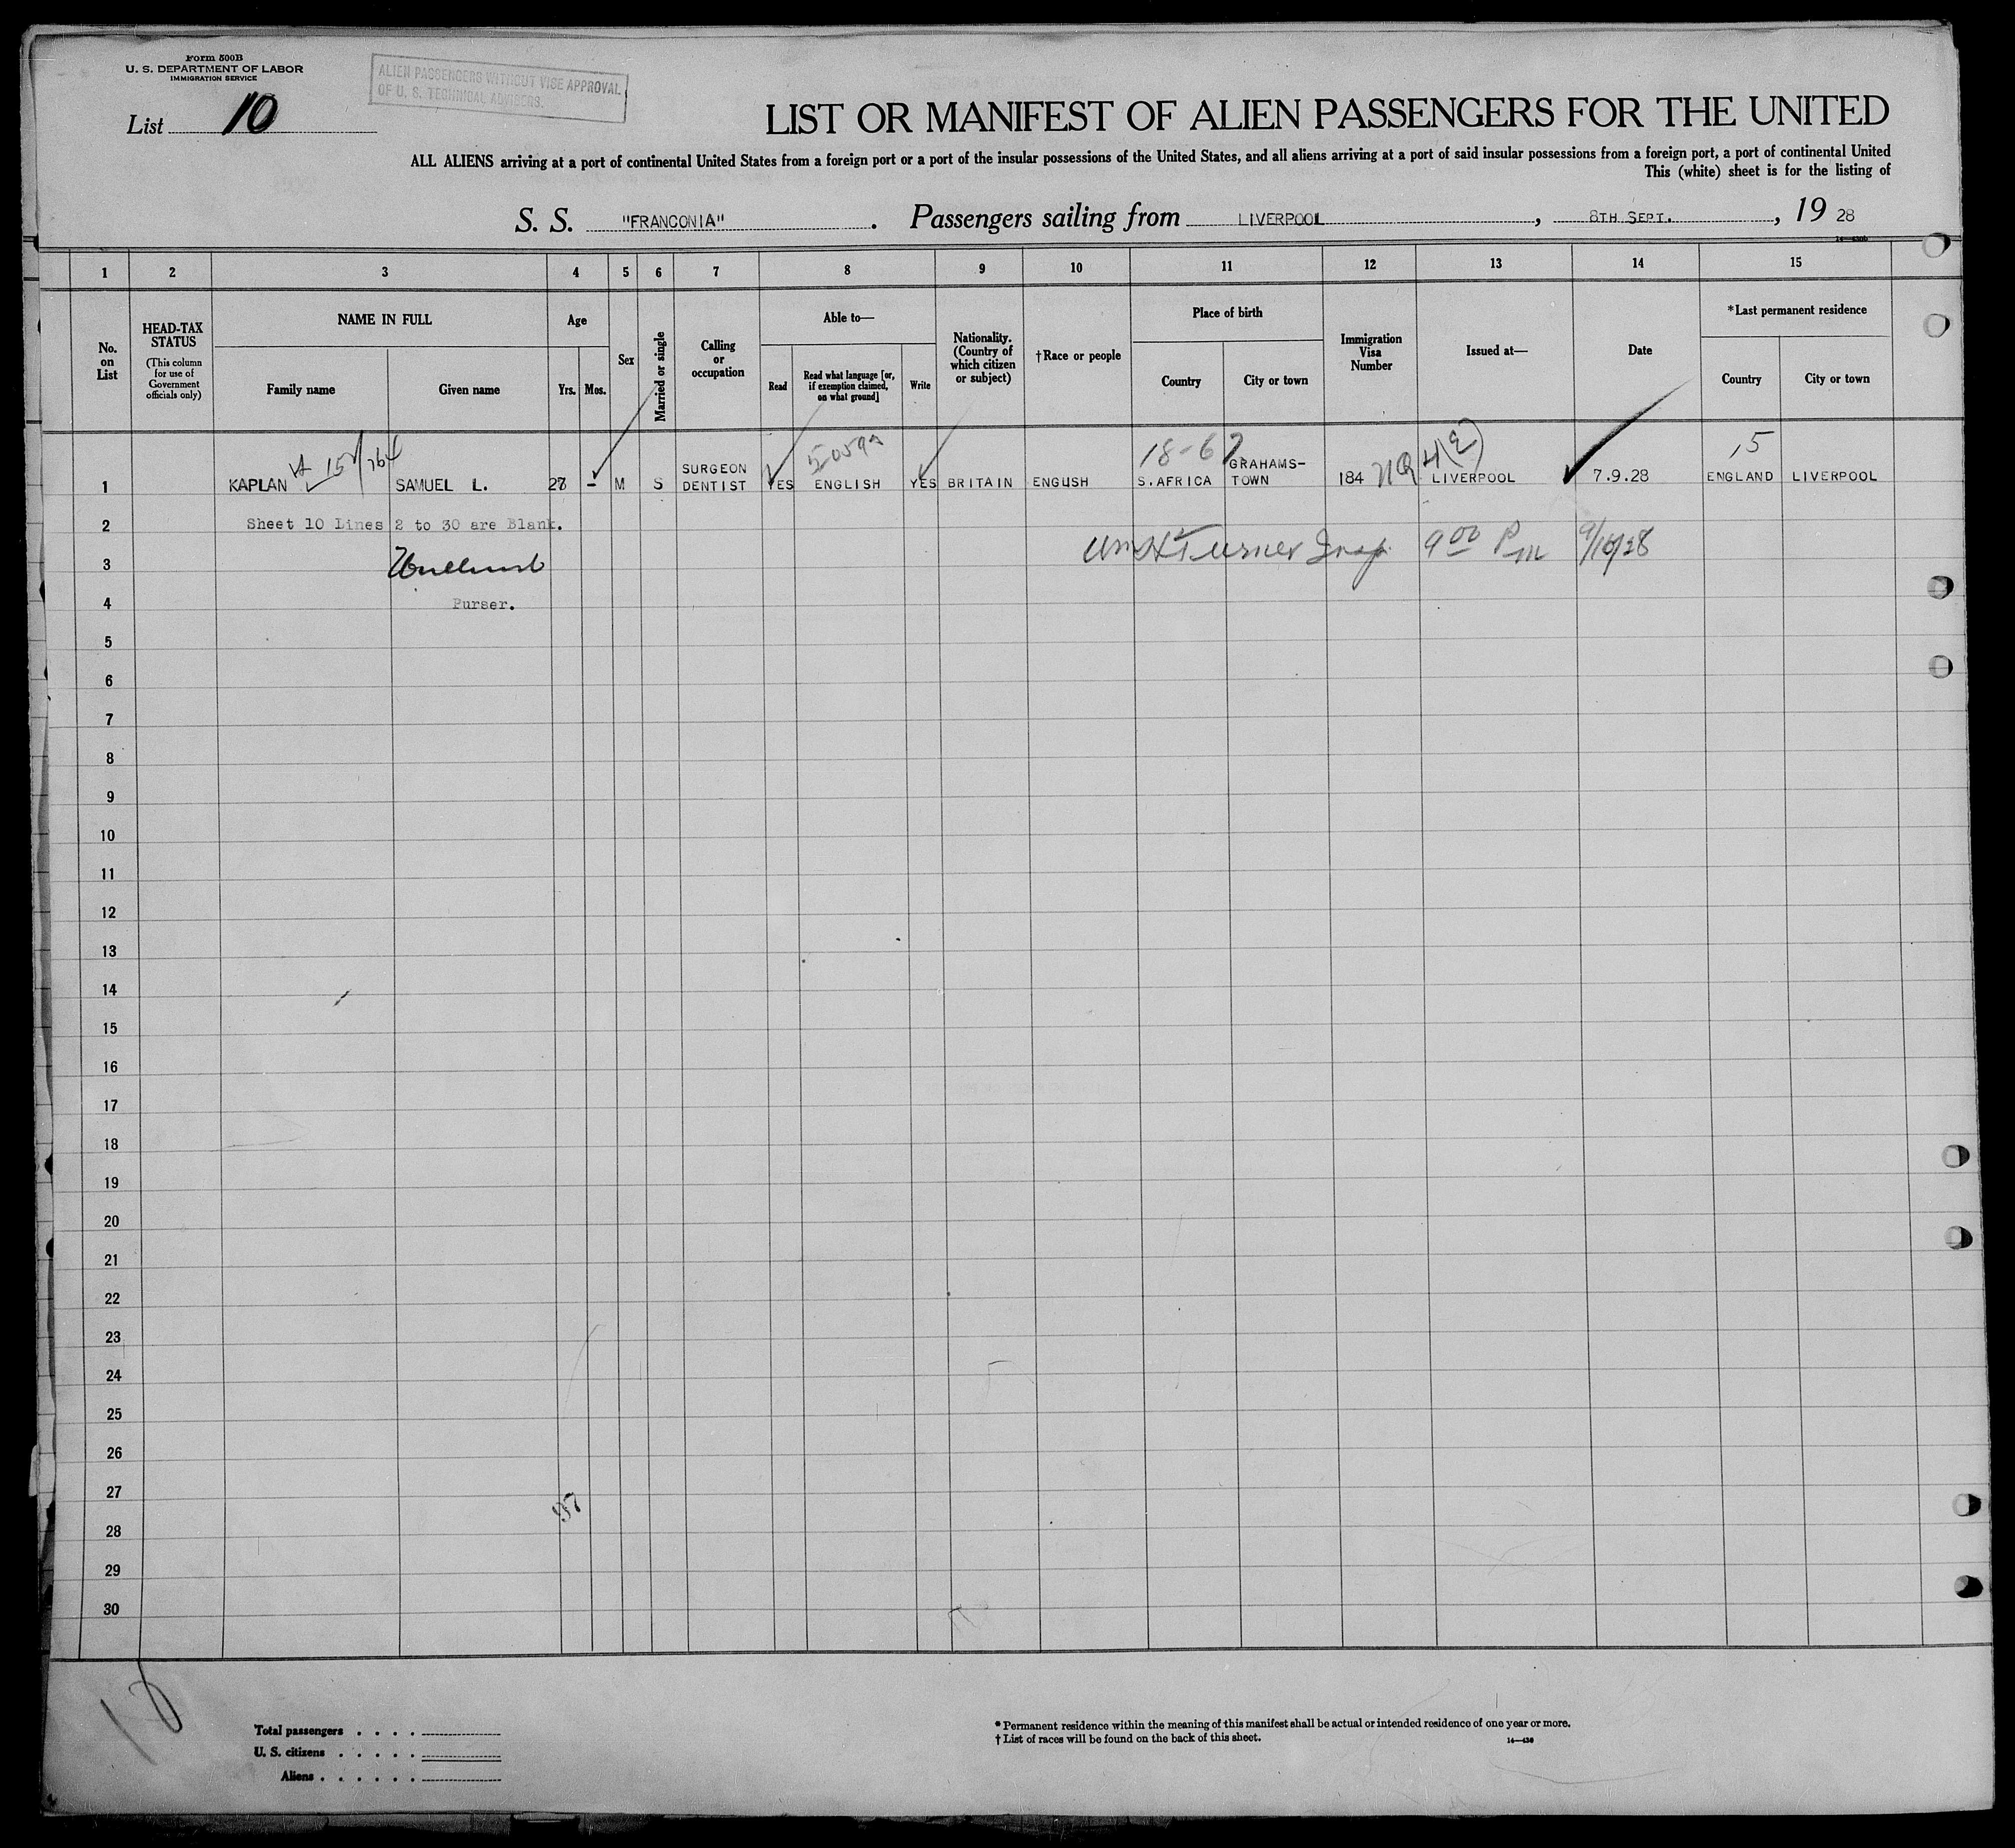 Form 500B
U. S. DEPARTMENT OF LABOR
IMMIGRATION SERVICE
ALIEN PASSENGERS WITHOUT VISE APPROVAL
OF U. S. TECHNICAL ADVISERS.
List 10
LIST OR MANIFEST OF ALIEN PASSENGERS FOR THE UNITED
ALL ALIENS arriving at a port of continental United States from a foreign port or a port of the insular possessions of the United States, and all aliens arriving at a port of said insular possessions from a foreign port, a port of continental United
This (white) sheet is for the listing of
S. S. "FRANCONIA". Passengers sailing from LIVERPOOL, 8TH SEPT., 19 28
1 2 3 4 5 6 7 8 9 10 11 12 13 14 15
No. on List
HEAD-TAX STATUS
(This column for use of Government officials only)
NAME IN FULL
Family name
Given name
Age
Yrs.
Mos.
Sex
Married or single
Calling or occupation
Able to—
Read
Read what language [or, if exemption claimed, on what ground]
Write
Nationality. (Country of which citizen or subject)
†Race or people
Place of birth
Country
City or town
Immigration Visa Number
Issued at—
Date
*Last permanent residence
Country
City or town
18-67 4(E) 15
1 KAPLAN SAMUEL L. - M S SURGEON DENTIST YES ENGLISH YES BRITAIN ENGLISH S.AFRICA GRAHAMS-TOWN 184 NQ LIVERPOOL 7.9.28 ENGLAND LIVERPOOL
2 Sheet 10 Lines 2 to 30 are Blank.
3 Wm H Turner Insp. 9 00 Pm 9/16/28
4 Purser.
5
6
7
8
9
10
11
12
13
14
15
16
17
18
19
20
21
22
23
24
25
26
27
28
29
30
10
Total passengers . . . .
U. S. citizens . . . . .
Aliens . . . . . .
* Permanent residence within the meaning of this manifest shall be actual or intended residence of one year or more.
† List of races will be found on the back of this sheet.
14—430